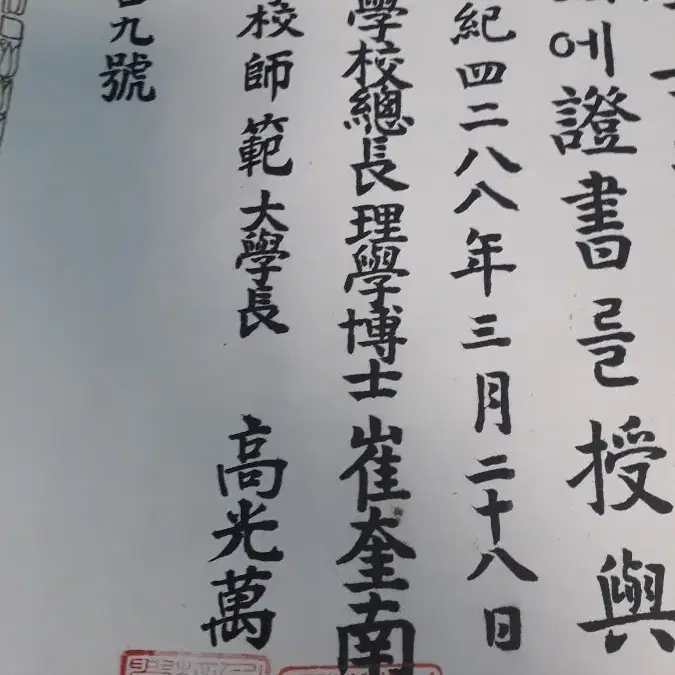 에證書를授與
紀四二八八年三月二十八日
學校總長理學博士崔奎南
校師範大學長 高光萬
九號